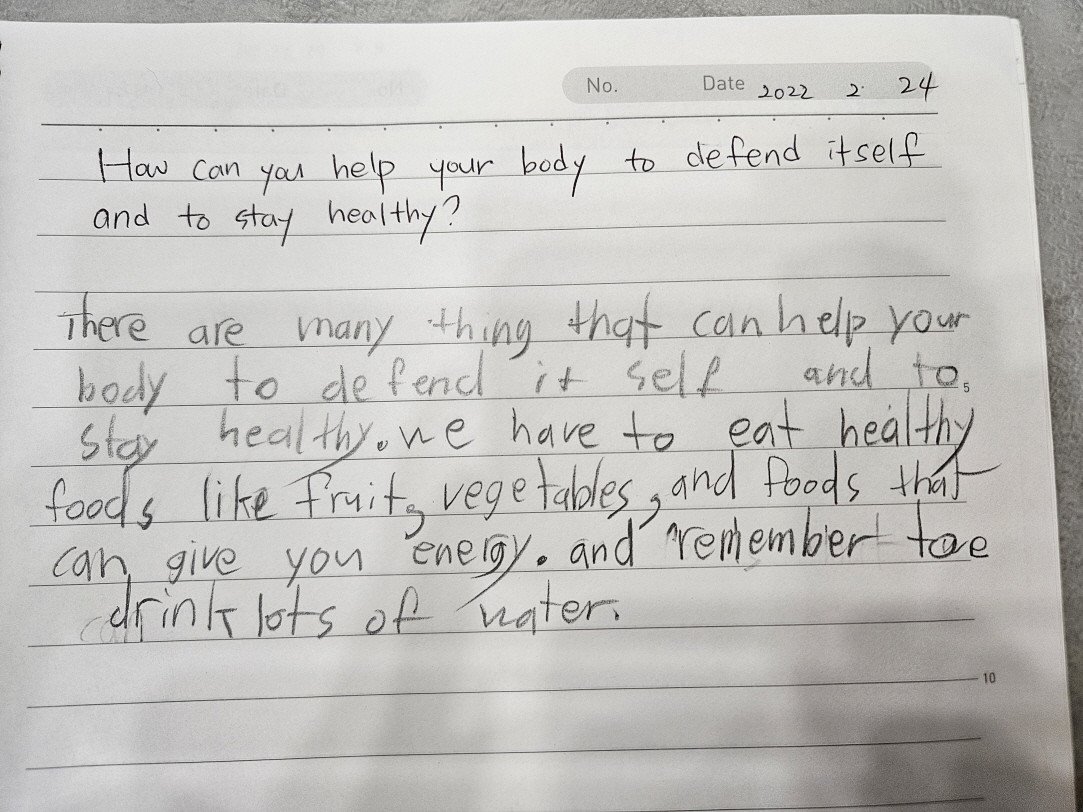 No. Date 2022 2. 24
How can you help your body to defend itself
and to stay healthy?
There are many thing that can help your
body to defend it self and to
5
stay healthy. we have to eat healthy
foods like fruit, vegetables, and foods that
can give you energy. and remember toe
drink lots of water.
10